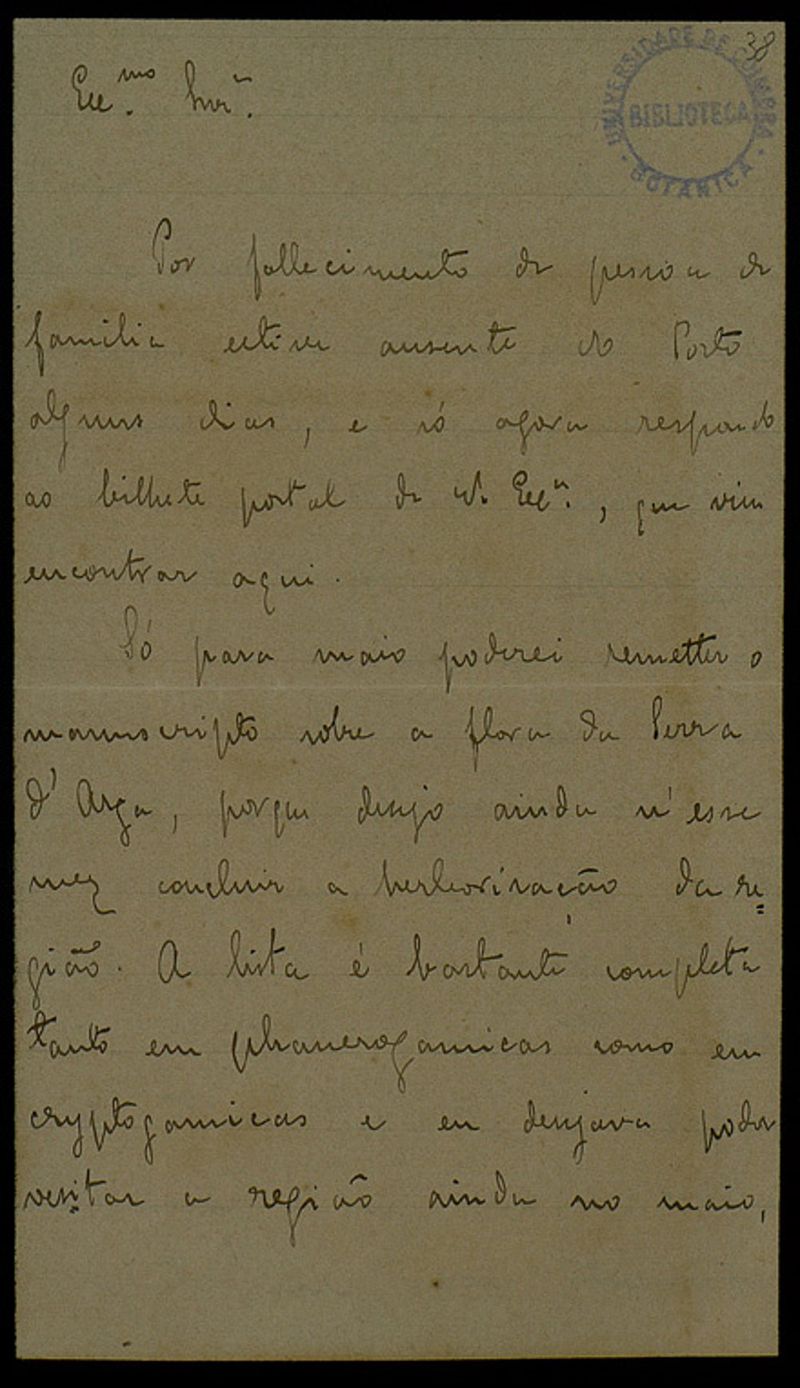 38
UNIVERSIDADE DE COIMBRA
BIBLIOTECA
BOTANICA
Exc.mo Snr.
Por fallecimento de pessoa de
familia estive ausente do Porto
alguns dias, e só agora respondo
ao bilhete postal de V. Exc.a, que vim
encontrar aqui.
Só para maio poderei remetter o
manuscripto sobre a flora da Serra
d'Arga, porque desejo ainda n'esse
mez concluir a herborisação da re=
gião. A lista é bastante completa
tanto em phanerogamicas como em
cryptogamicas e eu desejava poder
vesitar a região ainda no maio,